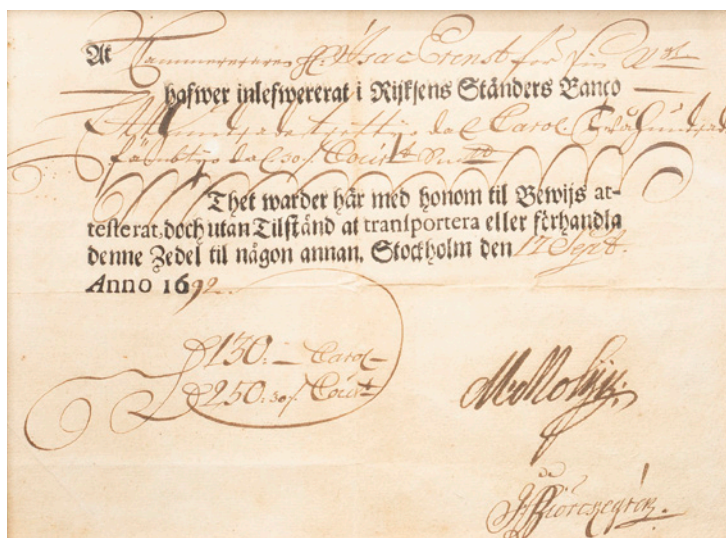 At Kammereraren H. Isac Ernst för sin
hafwer inlefwererat i Rijksens Ständers Banco
Ett hundrade trettijo dal Carol. Twåhundrade
fämbtijo dal 30 Cour
Thet warder här med honom til Bewijs at-
testerat, doch utan Tilstånd at transportera eller förhandla
denne Zedel til någon annan, Stockholm den 17 Sept.
Anno 1692
130:— Carol
250:30 Cour